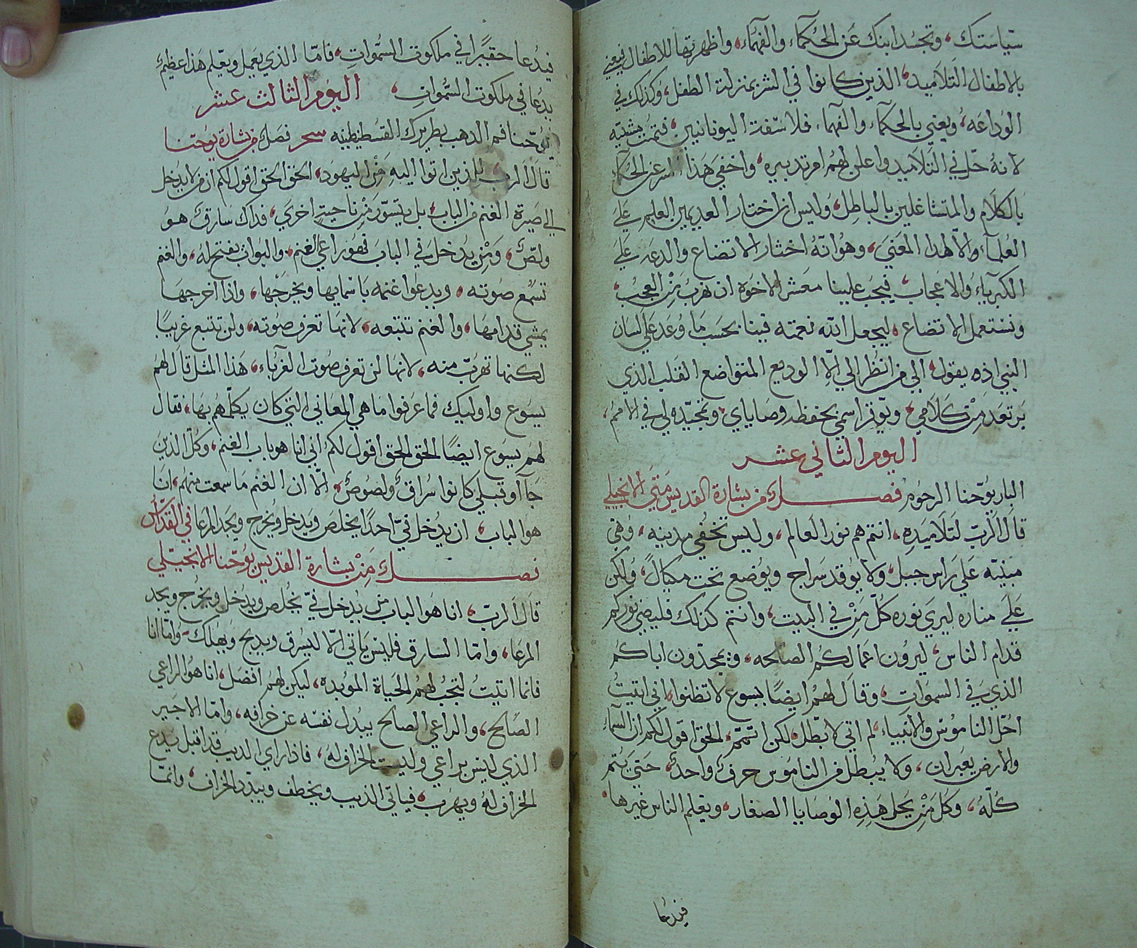 سياستك، وتجسد ابنك عن الحكماء والفهماء، واظهرتها للاطفال يعني
بالاطفال التلاميد، الذين كانوا في الشر بمنزلة الطفل، وكذلك في
الوداعه، ويعني بالحكماء والفهماء فلاسفة اليونانيين، فتمت مشيته
لانه حل في التلاميد واعلن لهم امر تدبيره، واخفي هذا السر عن الحكما
بالكلام والمتشاغلين بالباطل، وليس انه اختار العديمين العلم علي
العلماء والا لهدا المعني، وهو انه اختار الاتضاع والدعه علي
الكبرياء والاعجاب، فيجب علينا معشر الاخوه ان نهرب من العجب،
ونستعمل الاتضاع، ليجعل الله نعمته فينا بحسب ما وعد علي لسان
النبي اذ يقول، الي من انظر الي الا الوديع المتواضع القلب الذي
يرتعد من كلامي، ويوقر اسمي يحفظه وصاياي، ويمجده لي في الامم،
اليوم الثاني عشر
البار يوحنا الرحوم فصل من بشارة القديس متي الانجيلي
قال الرب لتلاميده، انتم هم نور العالم، وليس تخفي مدينه، وهي
مبنيه علي راس جبل، ولا يوقد سراج ويوضع تحت مكيال، ولكن
علي مناره ليري نوره كل من في البيت، وانتم كذلك فليضي نوركم
قدام الناس، ليرون اعمالكم الصالحه، ويمجدون اباكم
الذي في السموات، وقال لهم ايضا يسوع لا تظنوا اني اتيت
احل الناموس والانبيا، لم اتي لابطل لكن اتمم، الحق اقول لكم ان السماء
والارض يعبران، ولا يبطل من الناموس حرف واحد، حتي يتم
كله، وكل من يحل هذه الوصايا الصغار، ويعلم الناس غيرها،
فيدعا
فيدعا حقيرا في ملكوت السموات، فاما الذي يعمل ويعلم هذا عظيم
يدعا في ملكوت السموات، اليوم الثالث عشر
يوحنا فم الدهب بطريرك القسطنطينيه سحر فصل من بشارة يوحنا
قال الرب للذين اتوا اليه من اليهود، الحق الحق اقول لكم ان من لا يدخل
الي صيرة الغنم من الباب، بل يتسوق من ناحية اخري، فداك سارق هو
ولص، ومن يدخل في الباب فهو راعي الغنم، والبواب يفتح له، والغنم
تسمع صوته، ويدعوا غنمه باسمايها ويخرجها، واذا اخرجها
يمشي قدامها، والغنم تتبعه، لانها تعرف صوته، ولن تتبع غريبا
لكنها تهرب منه، لانها لن تعرف صوت الغرباء، هذا المثل قال لهم
يسوع واوليك فما عرفوا ما هي المعاني التي كان يكلمهم بها، فقال
لهم يسوع ايضا الحق الحق اقول لكم اني انا هو باب الغنم، وكل الذين
جاءوا قبلي كانوا سراق ولصوص، الا ان الغنم ما سمعت منهم، انا
هو الباب، ان يدخل في احدا يخلص ويدخل ويخرج ويجد المرعا في القداس
فصل من بشارة القديس يوحنا الانجيلي
قال الرب، انا هو الباب من يدخل في يخلص ويدخل ويخرج ويجد
المرعا، واما السارق فليس ياتي الا ليسرق ويدبح ويهلك واما انا
فانما اتيت لتجب لهم الحياة الموبده، ليكن لهم افضل، انا هو الراعي
الصالح، والراعي الصالح يبدل نفسه عن خرافه، واما الاجير
الذي ليس براعي وليست الخراف له، فاذا راي الديب قد اقبل يدع
الخراف له ويهرب، فياتي الديب ويخطف ويبدد الخراف، وانما